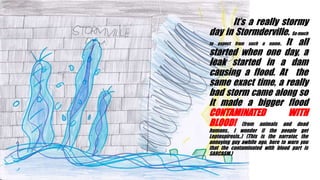 STORMVILLE
It's a really stormy
day in Stormderville. So much
to expect from such a name. It all
started when one day, a
leak started in a dam
causing a flood. At the
same exact time, a really
bad storm came along so
it made a bigger flood
CONTAMINATED WITH
BLOOD! (from animals and dead
humans, I wonder if the people get
Leptospirosis..) (This is the narrator, the
annoying guy awhile ago, here to warn you
that the contaminated with blood part is
SARCASM.)